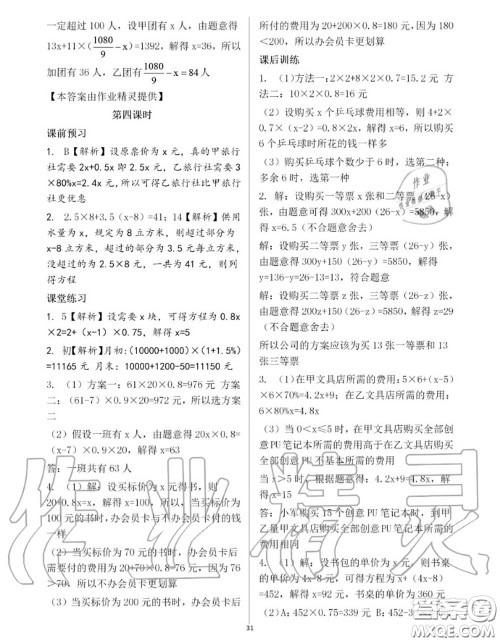 一定超过 100 人，设甲团有 x 人，由题意得
13x+11×(1080/9-x)=1392，解得 x=36，所以
加团有 36 人，乙团有1080/9-x=84人
【本答案由作业精灵提供】
第四课时
课前预习
1. B【解析】设原票价为 x 元，真的甲旅
行社需要 2x+0.5x 即 2.5x 元，乙旅行社需要 3
×80%x=2.4x 元，所以打印社已经比甲旅行
社更优惠
2. 2.5×8+3.5（x-8）=41；14【解析】供用
水量为 x，规定了 8 立方米，超过的部分为
x-8 立方米，超过的部分为 3.5 元每立方米，
没超过的为 2.5×8 元，一共为 41 元，则列
得方程
课堂练习
1. 5【解析】设需要 x 块，可得方程为 0.8x
×2=2+（x-1）×0.75，解得 x=5
2. 初【解析】月初:（10000+1000）×(1+1.5%)
=11165 元 月末：10000+1200-50=11150 元
3. （1）方案一：61×20×0.8=976 元 方案
二：（61-7）×0.9×20=972 元，所以选方案
二
（2）假设一班有 x 人，由题意得 20x×0.8=
（x-7）×0.9×20，解得 x=63
答：一班共有 63 人
4. （1）解：设买标价为 x 元得书，则
20+0.8x=x，解得 x=100，所以，当买标价为
100 元的书时，办会员卡与不办会员卡的钱
一样
（2）当买标价为 70 元的书时，办会员卡后
需要付的费用为 20+70×0.8=76 元，因为 76
>70，所以不办会员卡更划算
（3）当买标价为 200 元的书时，办会员卡
所付的费用为 20+200×0.8=180 元，因为 180
<200，所以办会员卡更划算
课后训练
1. （1）方法一：2×2+8×2×0.7=15.2 元 方
法二：10×2×0.8=16 元
（2）设购买 x 个乒乓球费用相等，则 4+2×
0.7×（x-2）=0.8×2x，解得 x=6，所以当
购买 6 个乒乓球时所花的钱一样多
（3）购买乒乓球个数少于 6 时，选第二种；
多余 6 时，选第一种
2. 解：设购买一等票 x 张和二等票（26-x）
张，由题意可得 300x+200（26-x）=5850，解
得 x=6.5（不符合题意舍去）
解：设购买二等票 y 张，三等票（26-y）张，
由题意可得 300y+150（26-y）=5850，解得
y=13，26-y=26-13=13，符合题意
解：设购买二等票 z 张，三等票（26-z）张，
由题意得 200z+150（26-z）=5850，解得 z=29
（不符合题意舍去）
所以公司的方案应该为买 13 张一等票和 13
张三等票
3. （1）在甲文具店所需的费用：5×6+（x-5）
×6×70%=4.2x+9；在乙文具店所需的费用：
6×80%x=4.8x
（3）当 0<x≤5 时，在甲文具店购买全部
创意 PU 笔记本所需的费用高于在乙文具店购买
全部创意 PU 笔记本所需的费用
当 x>5 时，根据题意得：4.2x+9=4.8x，解
得 x=15
答：小军购买 15 个创意PU笔记本时，到甲
乙量甲文具店购买全部创意PU笔记本所需的
费用相同
4. （1）解：设书包的单价为 x 元，则书桌的
单价为 4x-8 元，可得方程 x+（4x-8）
=452，解得 x=92 答：书桌的单价为 360 元
（2）A：452×0.75=339 元 B：452-25×4=
31
作业精灵
答案圈
MXQE.COM